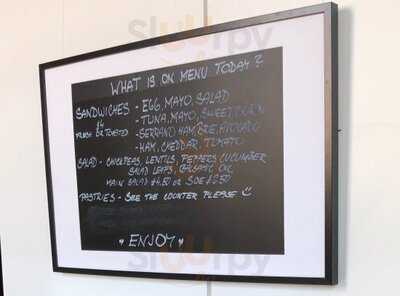 WHAT IS ON MENU TODAY?
SANDWICHES - EGG, MAYO, SALAD
£4 - TUNA, MAYO, SWEETCORN
FRESH OR TOASTED - SERRANO HAM, BRIE, AVOCADO
- HAM, CHEDDAR, TOMATO
SALAD - CHICKPEAS, LENTILS, PEPPERS CUCUMBER
SALAD LEAFS, BALSAMIC OIL
MAIN SALAD £4.50 OR SIDE £2.50
PASTRIES - SEE THE COUNTER PLEASE
♥ ENJOY ♥
sluurpy
sluurpy